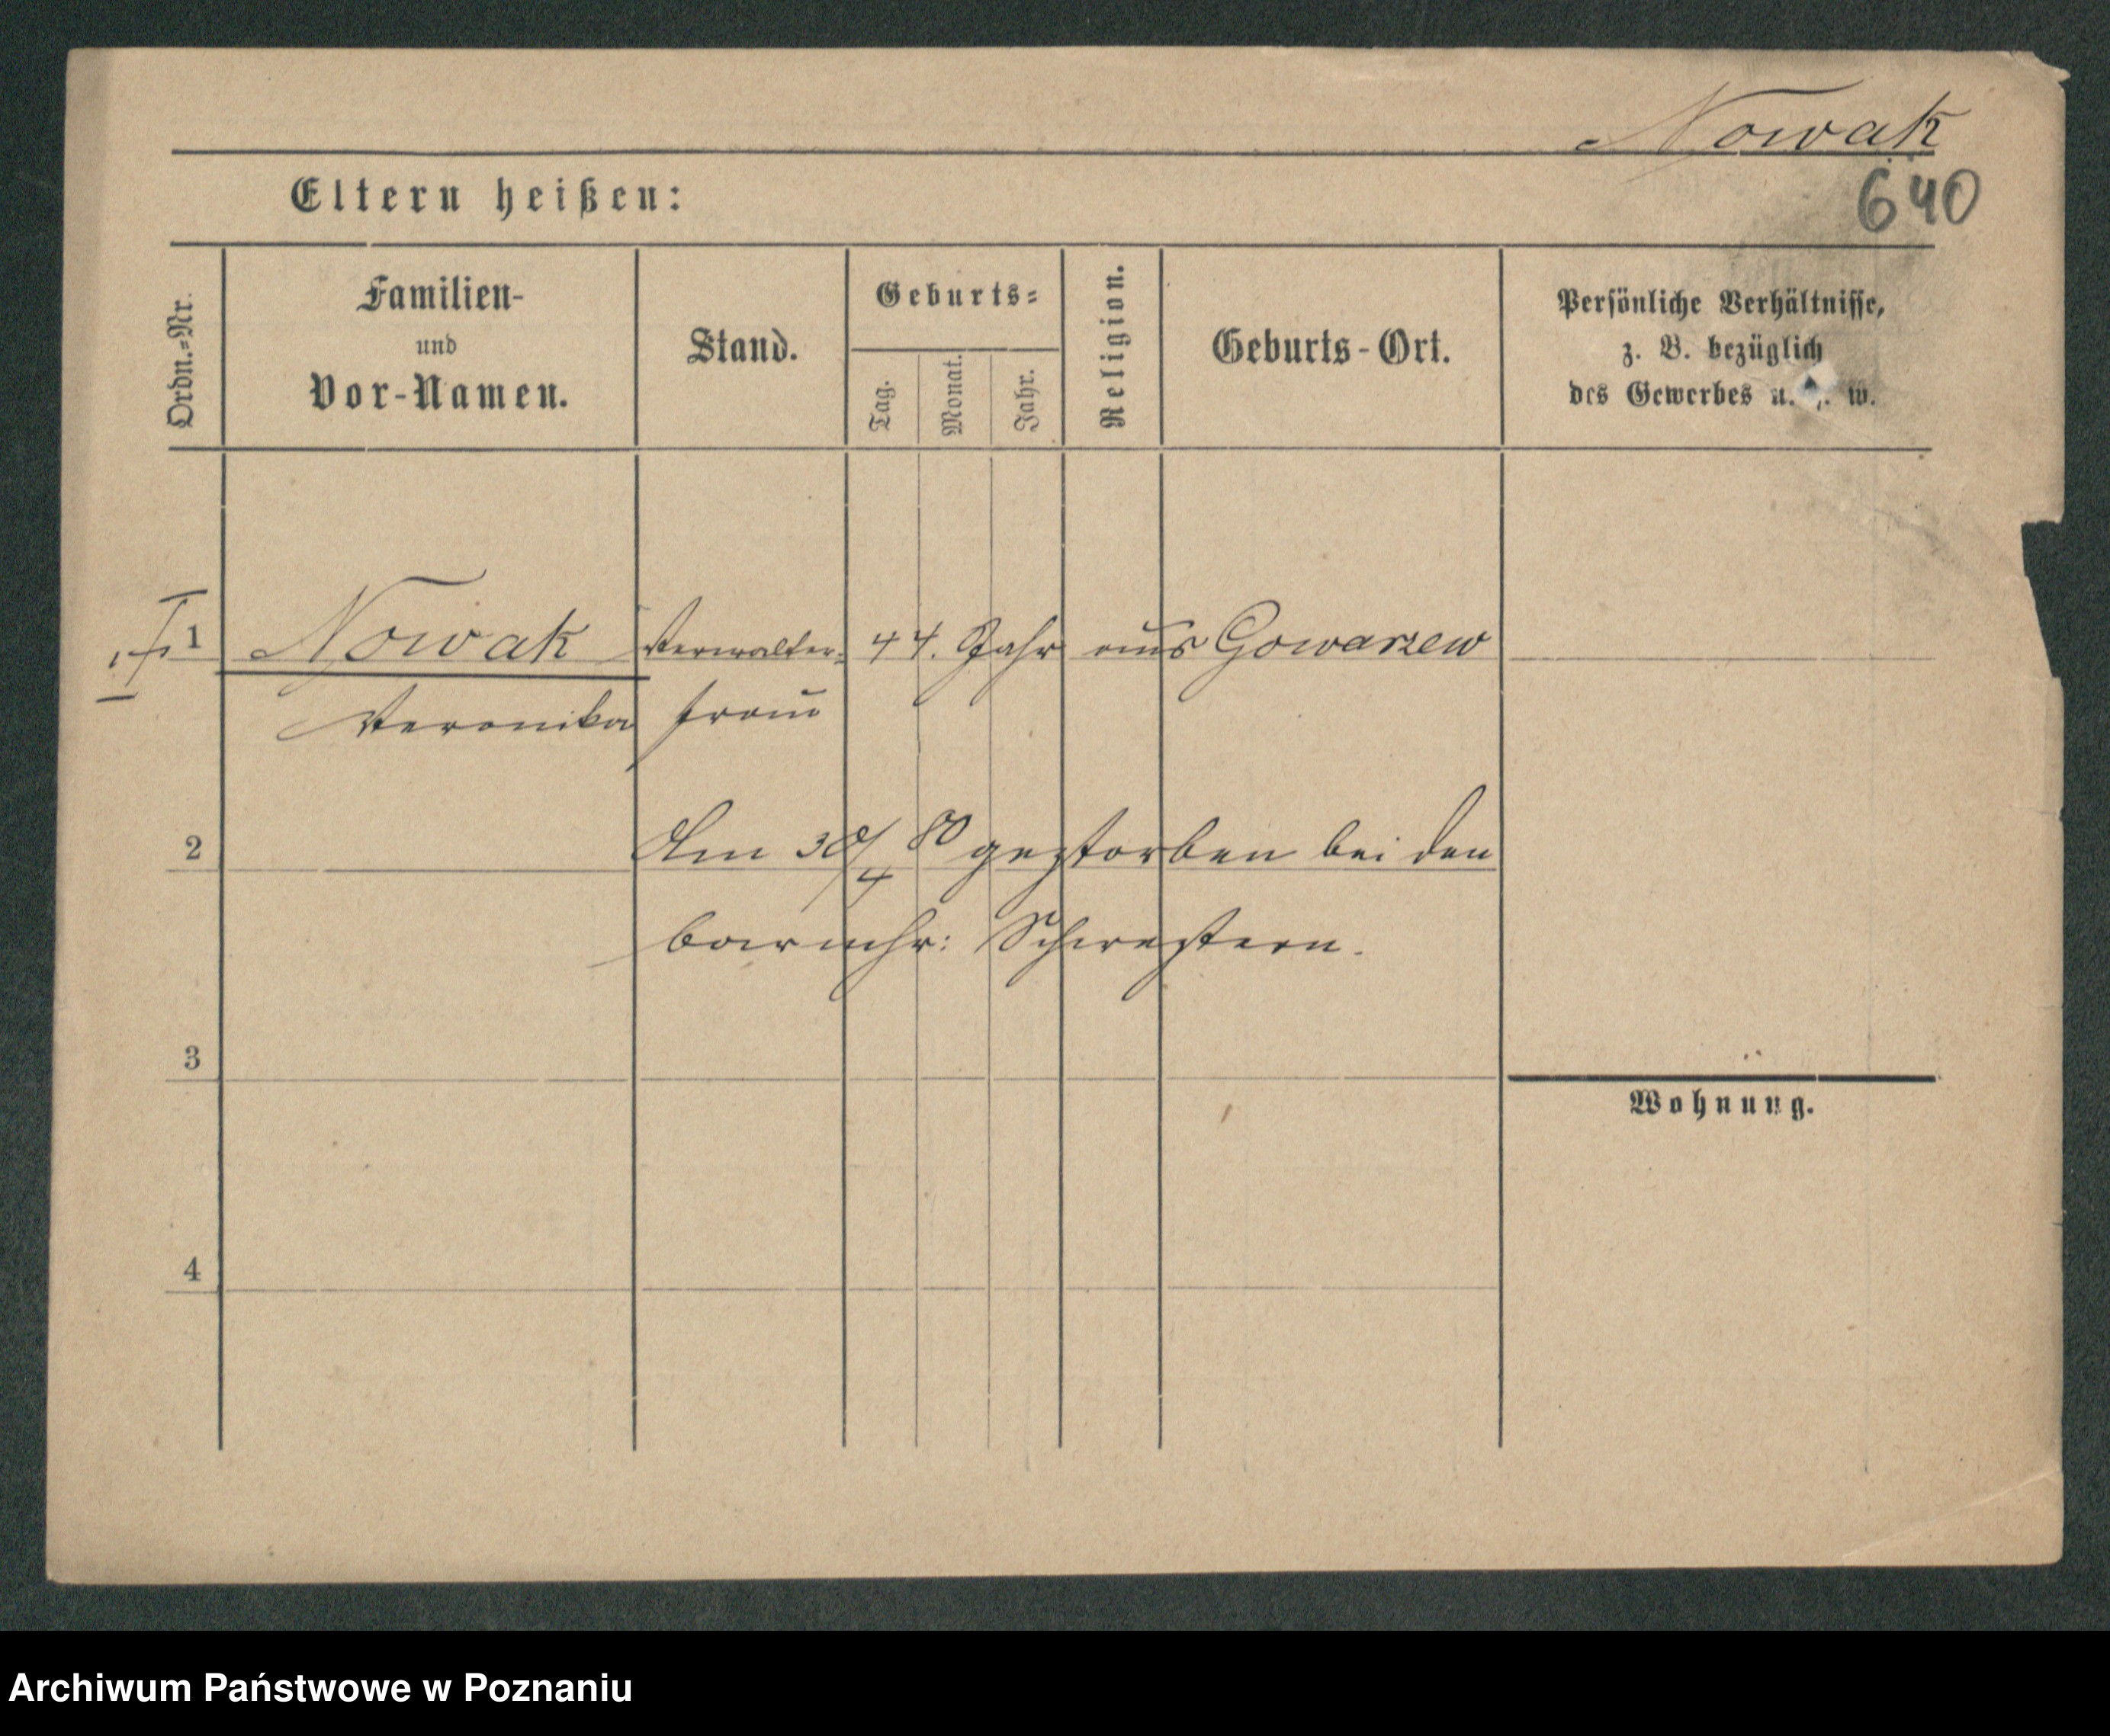 Nowak
640
Eltern heißen:
Ordn.-Nr.
Familien-
und
Vor-Namen.
Stand.
Geburts-
Tag.
Monat.
Jahr.
Religion.
Geburts-Ort.
Persönliche Verhältnisse,
z. B. bezüglich
des Gewerbes u. s. w.
1 Nowak Verwalter- 44. Jahr aus Gowarzew
Veronika frau
2 Am 30/4 80 gestorben bei den
barmhr: Schwestern.
3
Wohnung.
4
Archiwum Państwowe w Poznaniu